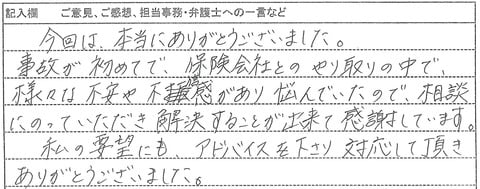 記入欄 ご意見、ご感想、担当事務・弁護士への一言など
今回は、本当にありがとうございました。
事故が初めてで、保険会社とのやり取りの中で、
様々な不安や不信感があり悩んでいたので、相談
にのっていただき解決することが出来て感謝しています。
私の要望にも、アドバイスを下さり対応して頂き
ありがとうございました。